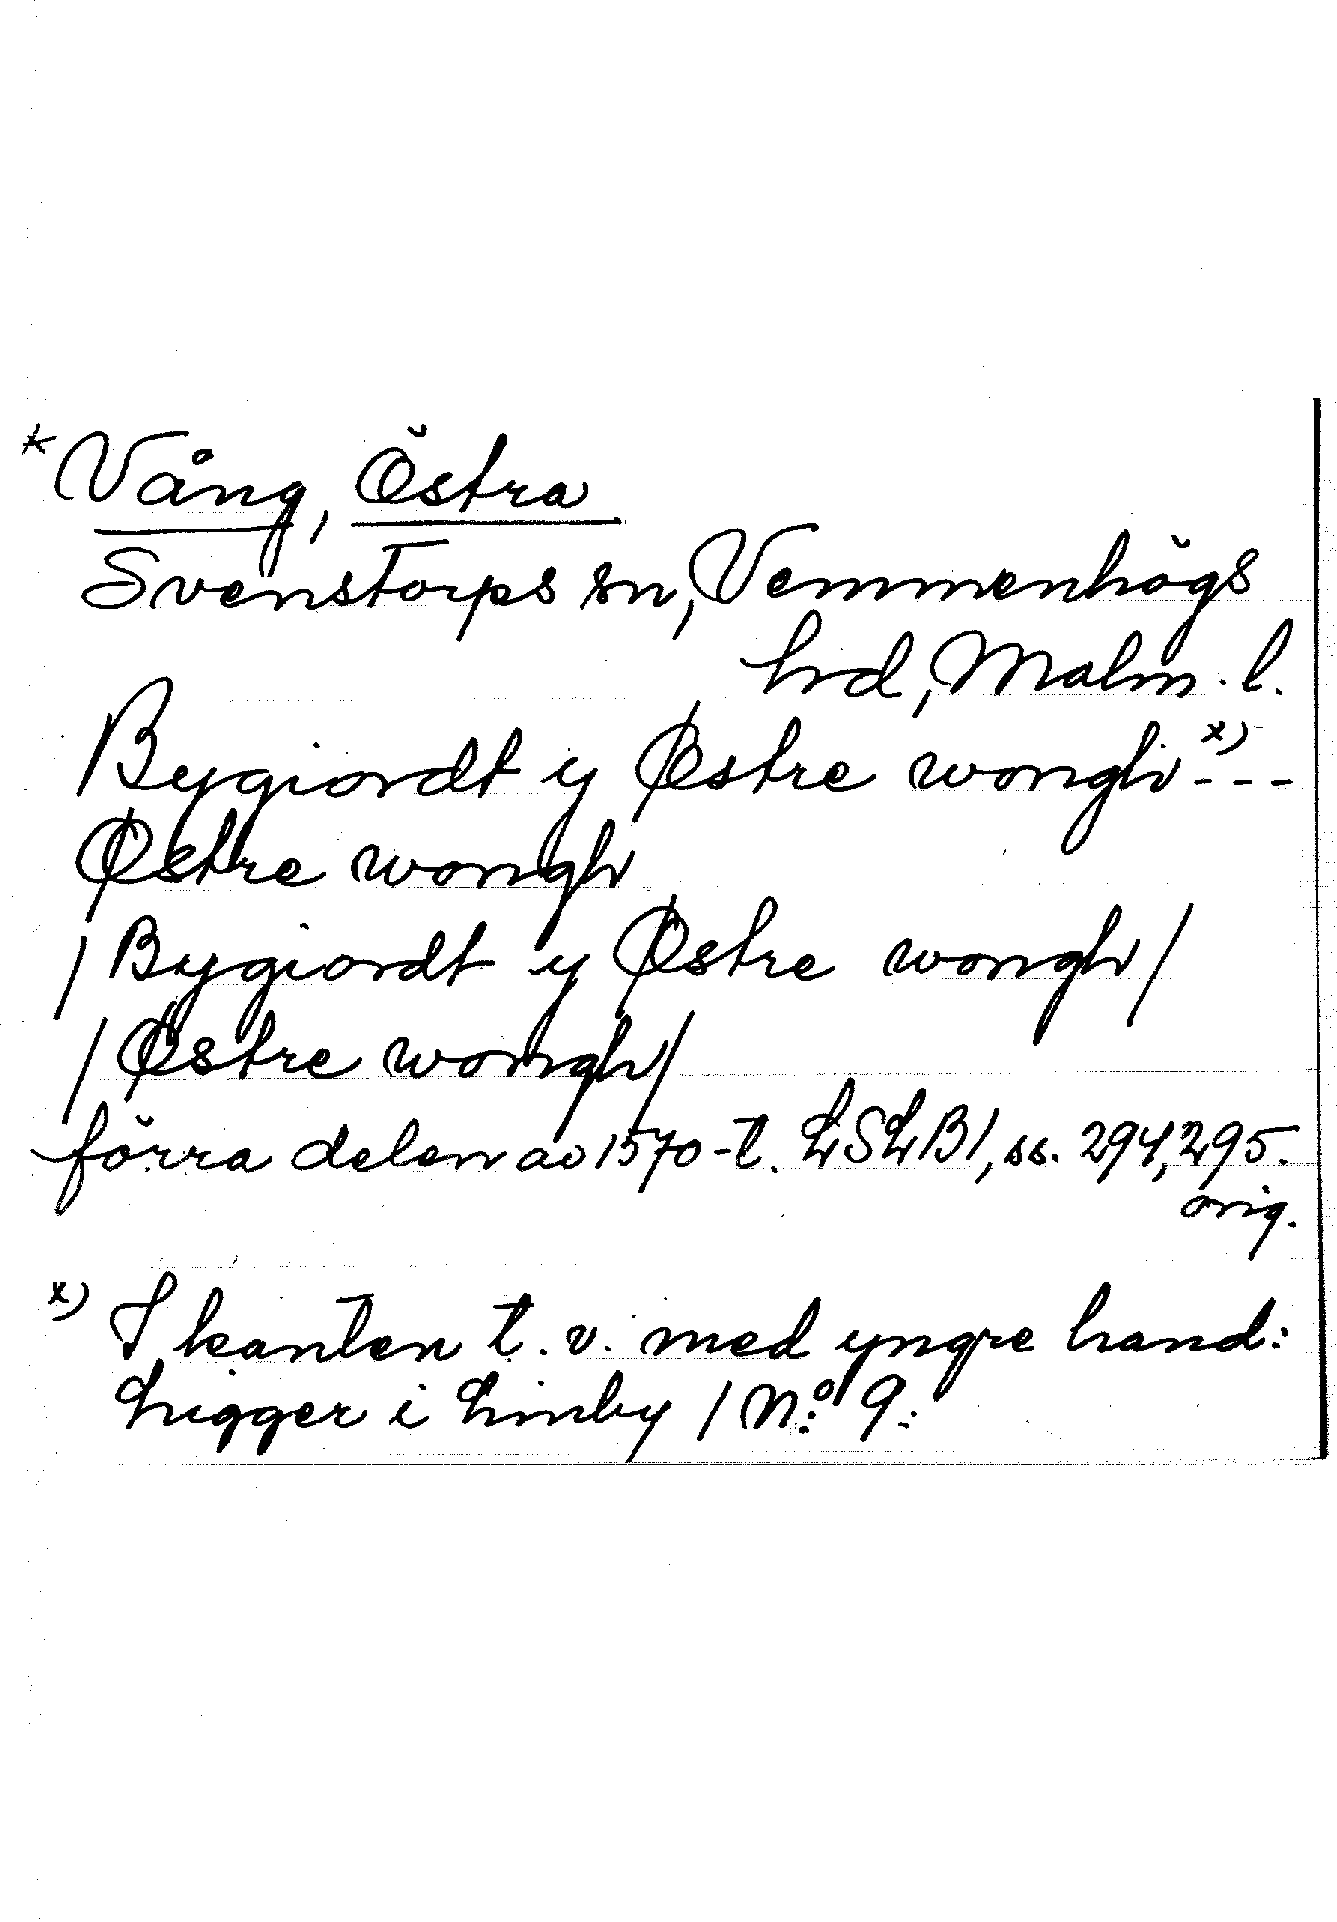 *Vång, Östra
Svenstorps sn, Vemmenhögs
hd, Malm. l.
Bygiordt y Østre wongh x) - - -
Østre wongh
/Bygiordt y Østre wongh/
/Østre wongh/
förra delen av 1570-t. LSLB1, ss. 294, 295.
orig.
x) I kanten t. v. med yngre hand:
Ligger i Limby / No: 9: